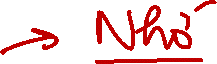 → Nhớ